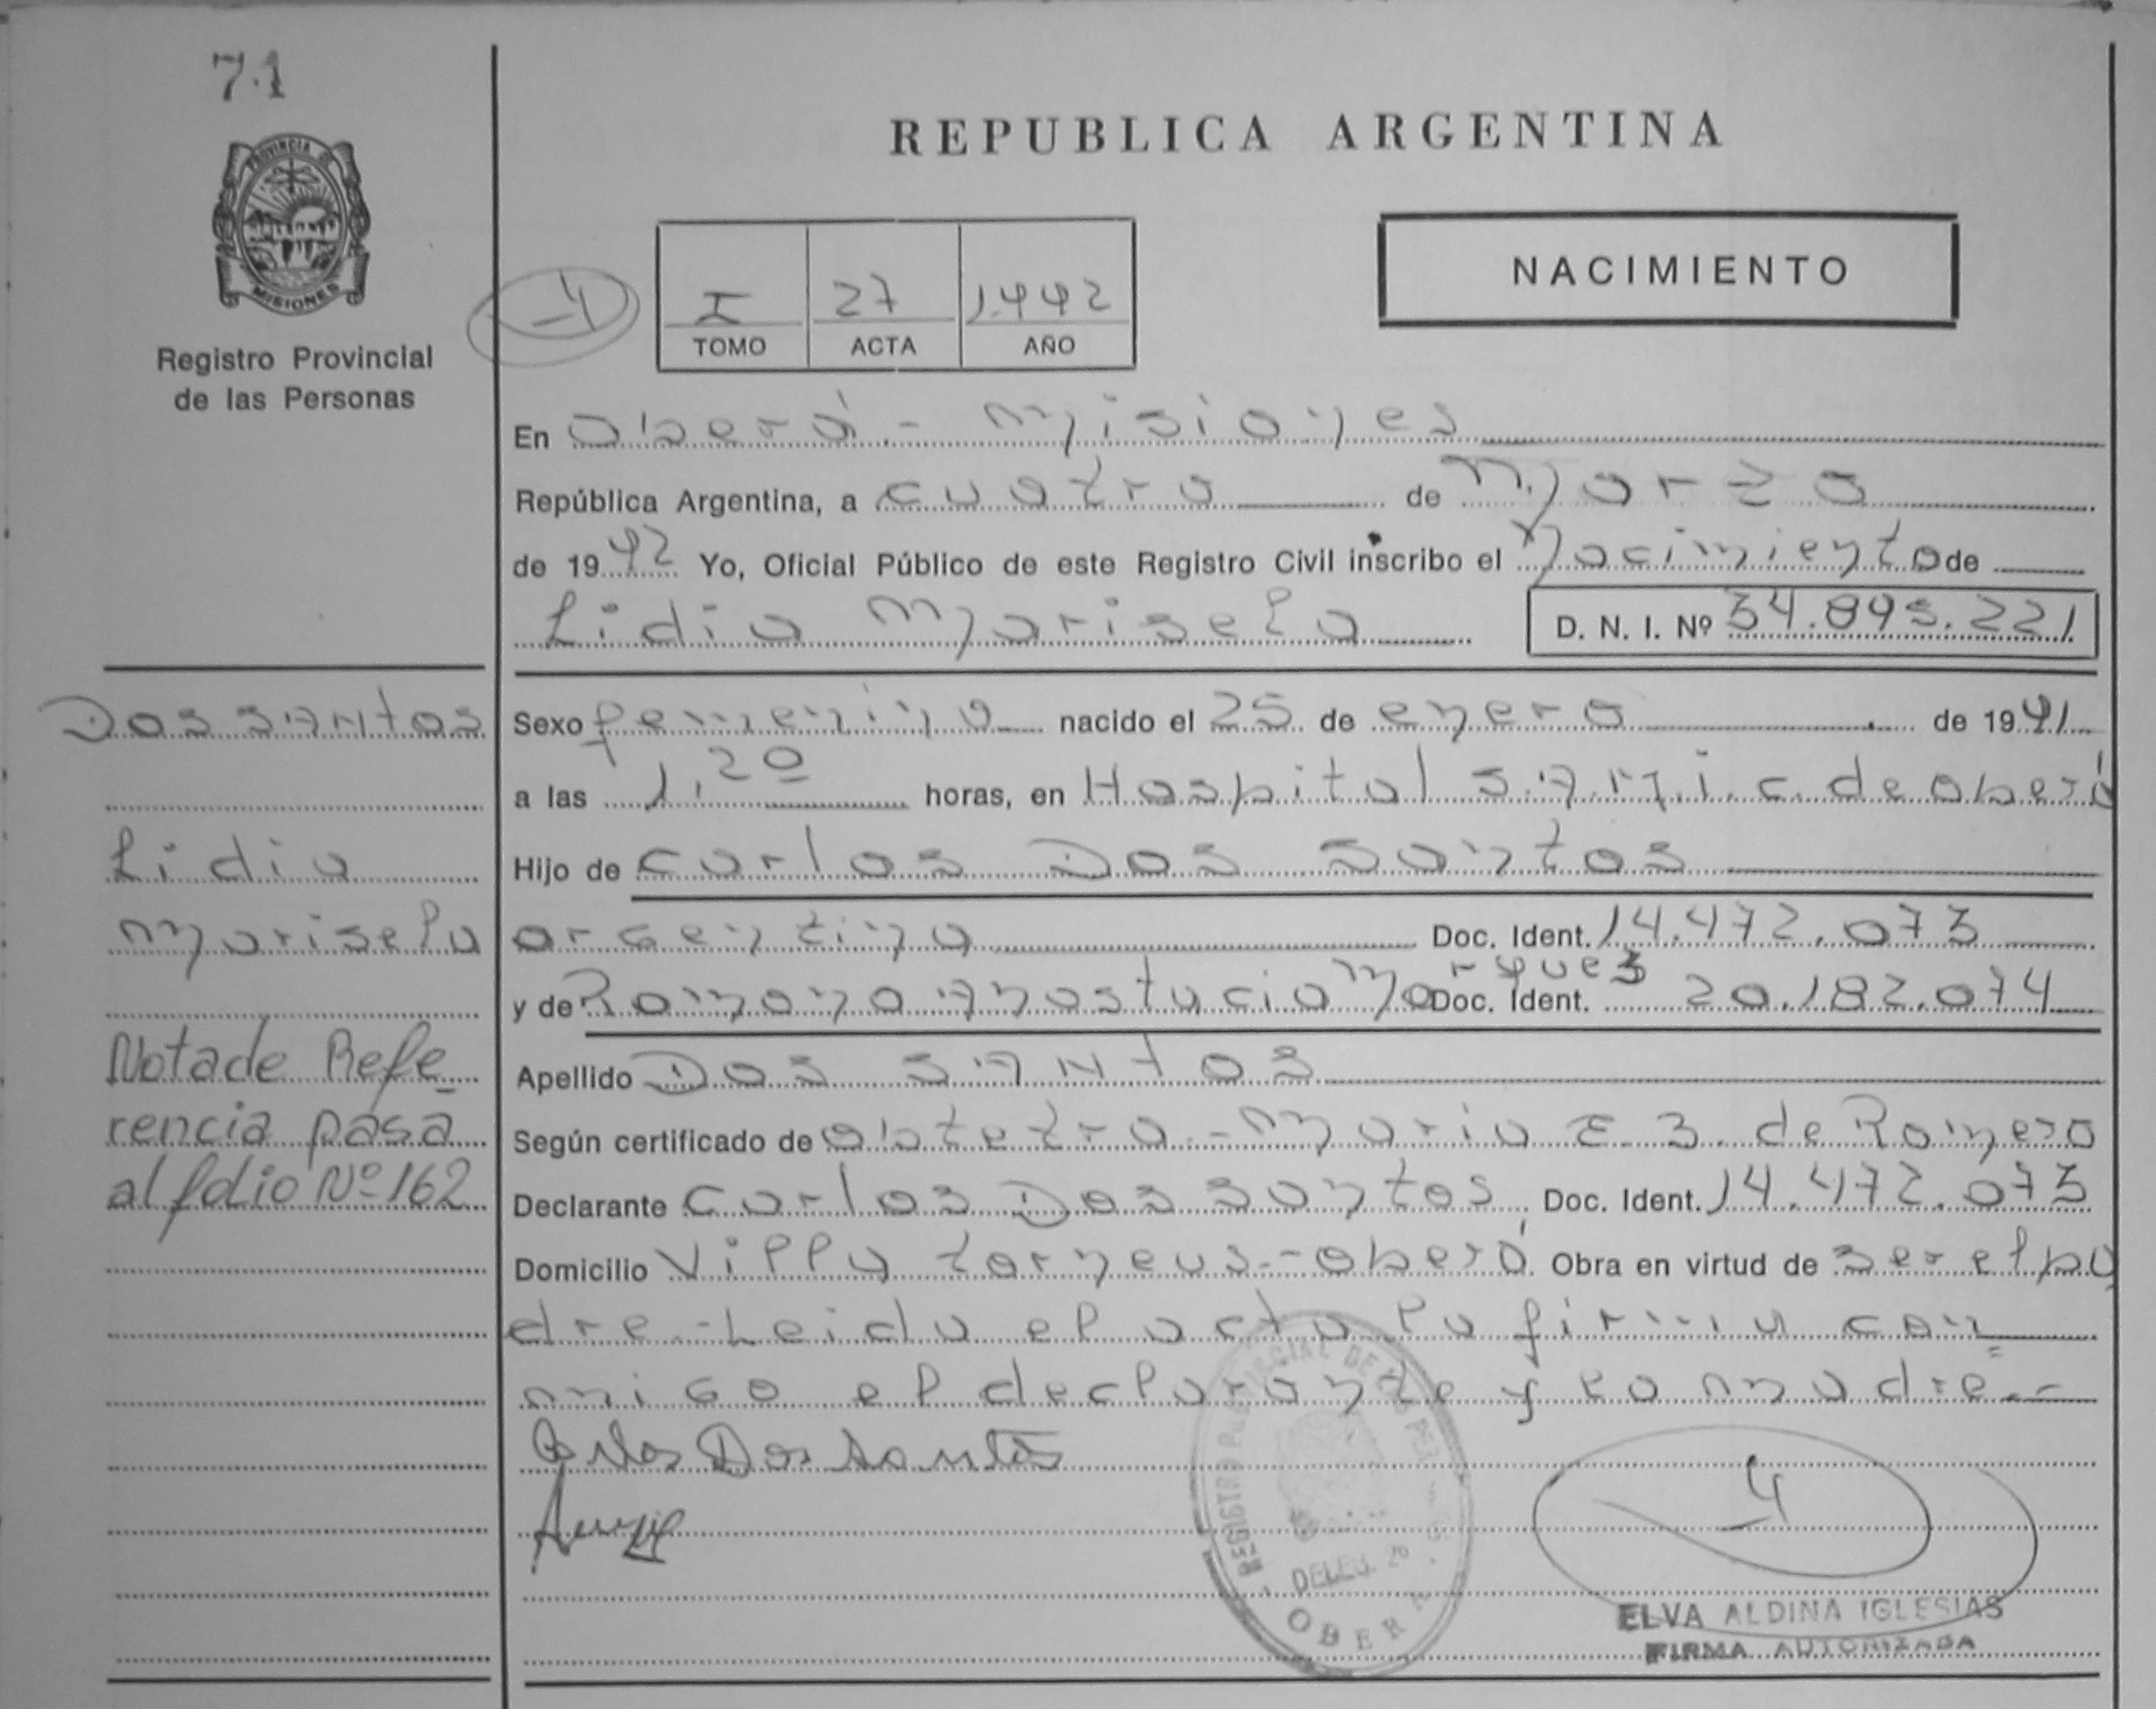 71
REPUBLICA ARGENTINA
PROVINCIA DE
MISIONES
Registro Provincial
de las Personas
NACIMIENTO
I 27 1.992
TOMO ACTA AÑO
En Oberá - Misiones
República Argentina, a cuatro de Marzo
de 1992 Yo, Oficial Público de este Registro Civil inscribo el Nacimiento de
Lidia Marisela D. N. I. Nº 34.895.221
Dos SANtos
Lidia
Marisela
Nota de Refe_
rencia pasa
al folio Nº 162
Sexo femenino nacido el 25 de enero de 1991
a las 1,20 horas, en Hospital S.A.M.i.c. de Oberá
Hijo de Carlos Dos Santos
argentina Doc. Ident. 14.472.073
y de Ramona Anastacia Marques Doc. Ident. 20.182.074
Apellido Dos SANtos
Según certificado de obstetra - Maria E. B. de Romero
Declarante Carlos Dos Santos, Doc. Ident. 14.472.073
Domicilio Villa torneus - Oberá Obra en virtud de ser el pa
dre.- Leida el acta la firma con=
migo el declarante y la madre.-
Carlos Dos Santos
REGISTRO PROVINCIAL DE LAS PER
DELEG.
OBERA
ELVA ALDINA IGLESIAS
FIRMA AUTORIZADA